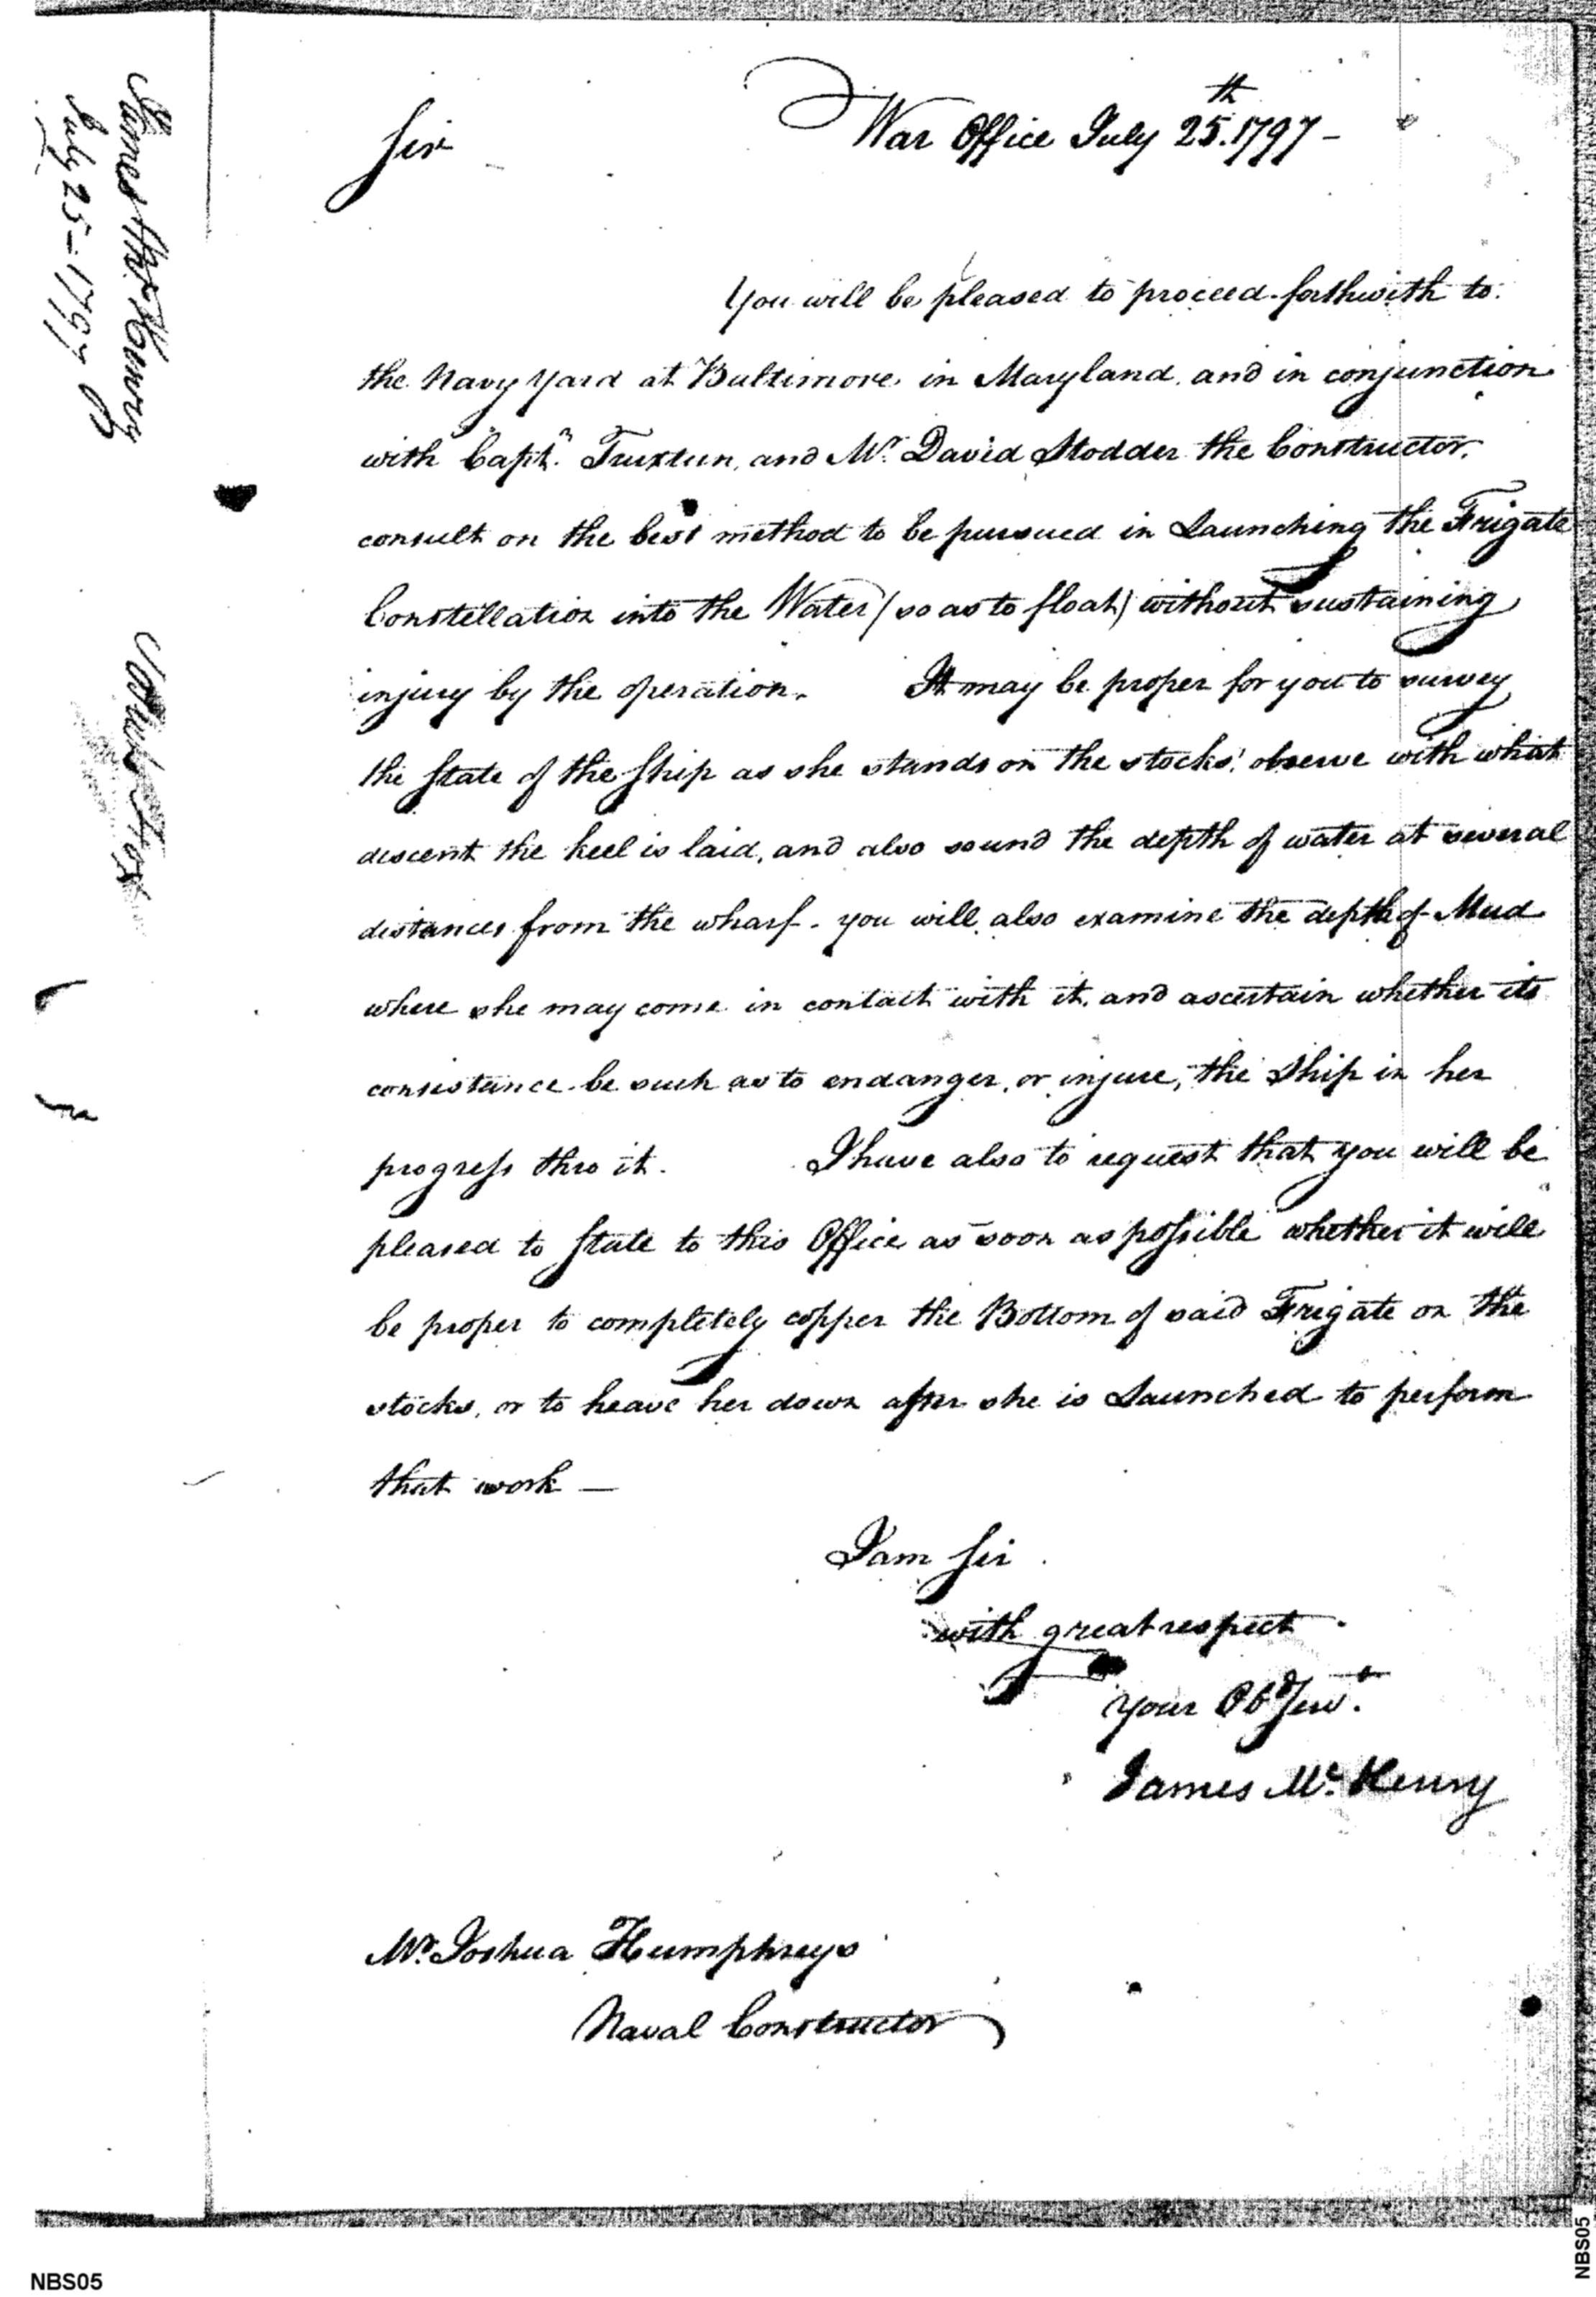 James McHenry
July 25 = 1797
War Office July 25.th 1797 -
Sir
You will be pleased to proceed forthwith to
the Navy Yard at Baltimore in Maryland, and in conjunction
with Capt.n Truxtun, and Mr. David Stodder the Constructor,
consult on the best method to be pursued in Launching the Frigate
Constellation into the Water (so as to float) without sustaining
injury by the operation. It may be proper for you to survey
the State of the Ship as she stands on the stocks, observe with what
descent the keel is laid, and also sound the depth of water at several
distances from the wharf - you will also examine the depth of Mud
where she may come in contact with it, and ascertain whether its
consistance be such as to endanger, or injure, the Ship in her
progress thro it. I have also to request that you will be
pleased to State to this Office as soon as possible whether it will
be proper to completely copper the Bottom of said Frigate on the
stocks, or to heave her down after she is Launched to perform
that work —
I am Sir
with great respect
your Obd Servt.
James McHenry
Mr. Joshua Humphreys
Naval Constructor
NBS05
NBS05